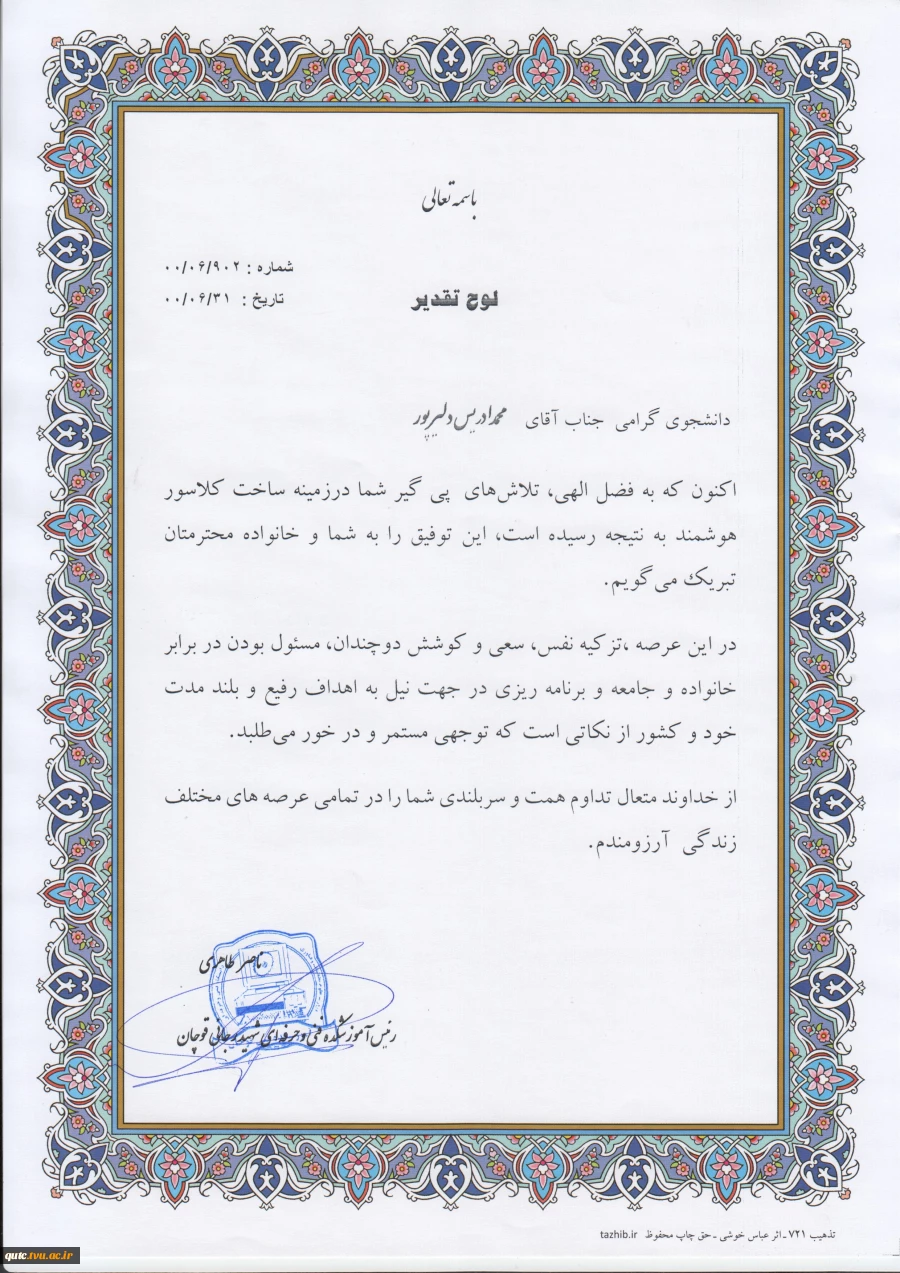 باسمه تعالی
شماره : ۰۰/۰۶/۹۰۲
تاریخ : ۰۰/۰۶/۳۱
لوح تقدیر
دانشجوی گرامی جناب آقای محمدادریس دلیرپور
اکنون که به فضل الهی، تلاش‌های پی گیر شما درزمینه ساخت کلاسور
هوشمند به نتیجه رسیده است، این توفیق را به شما و خانواده محترمتان
تبریک می‌گویم.
در این عرصه ،تزکیه نفس، سعی و کوشش دوچندان، مسئول بودن در برابر
خانواده و جامعه و برنامه ریزی در جهت نیل به اهداف رفیع و بلند مدت
خود و کشور از نکاتی است که توجهی مستمر و در خور می‌طلبد.
از خداوند متعال تداوم همت و سربلندی شما را در تمامی عرصه های مختلف
زندگی آرزومندم.
ناصر طاهری
رئیس آموزشکده فنی و حرفه‌ای شهید رجائی قوچان
تذهیب ۷۲۱ - اثر عباس خوشی - حق چاپ محفوظ tazhib.ir
qutc.tvu.ac.ir